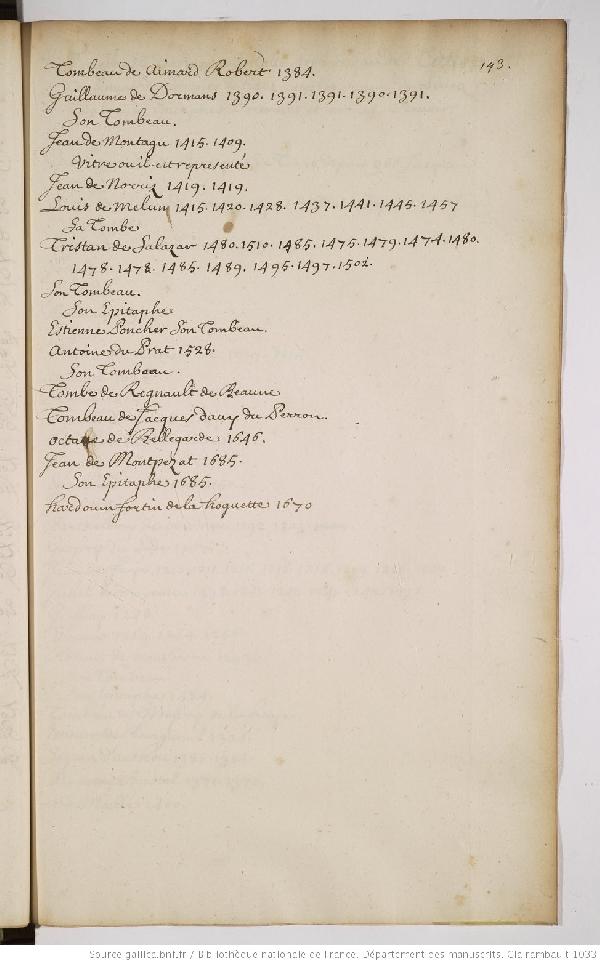 143.
Tombeau de Aimard Robert 1384.
Guillaume de Dormans 1390. 1391. 1391. 1390. 1391.
Son Tombeau.
Jean de Montagu 1415. 1409.
Vitre ou il est representé
Jean de 1419. 1419.
Louis de Melun 1415. 1420. 1428. 1437. 1441. 1445. 1457
Sa Tombe
Tristan de Salazar 1480. 1510. 1485. 1475. 1479. 1474. 1480.
1478. 1478. 1485. 1489. 1495. 1497. 1502.
Son Tombeau.
Son Epitaphe
Estienne Poncher Son Tombeau.
Antoine du Prat 1528.
Son Tombeau.
Tombe de Regnault de Beaune
Tombeau de Jacques davy du Perron.
octave de Bellegarde 1646.
Jean de Montpezat 1685.
Son Epitaphe 1685.
hardouin fortin de la hoguette 1670
Source gallica.bnf.fr / Bibliothèque nationale de France. Département des manuscrits. Clairambault 1033